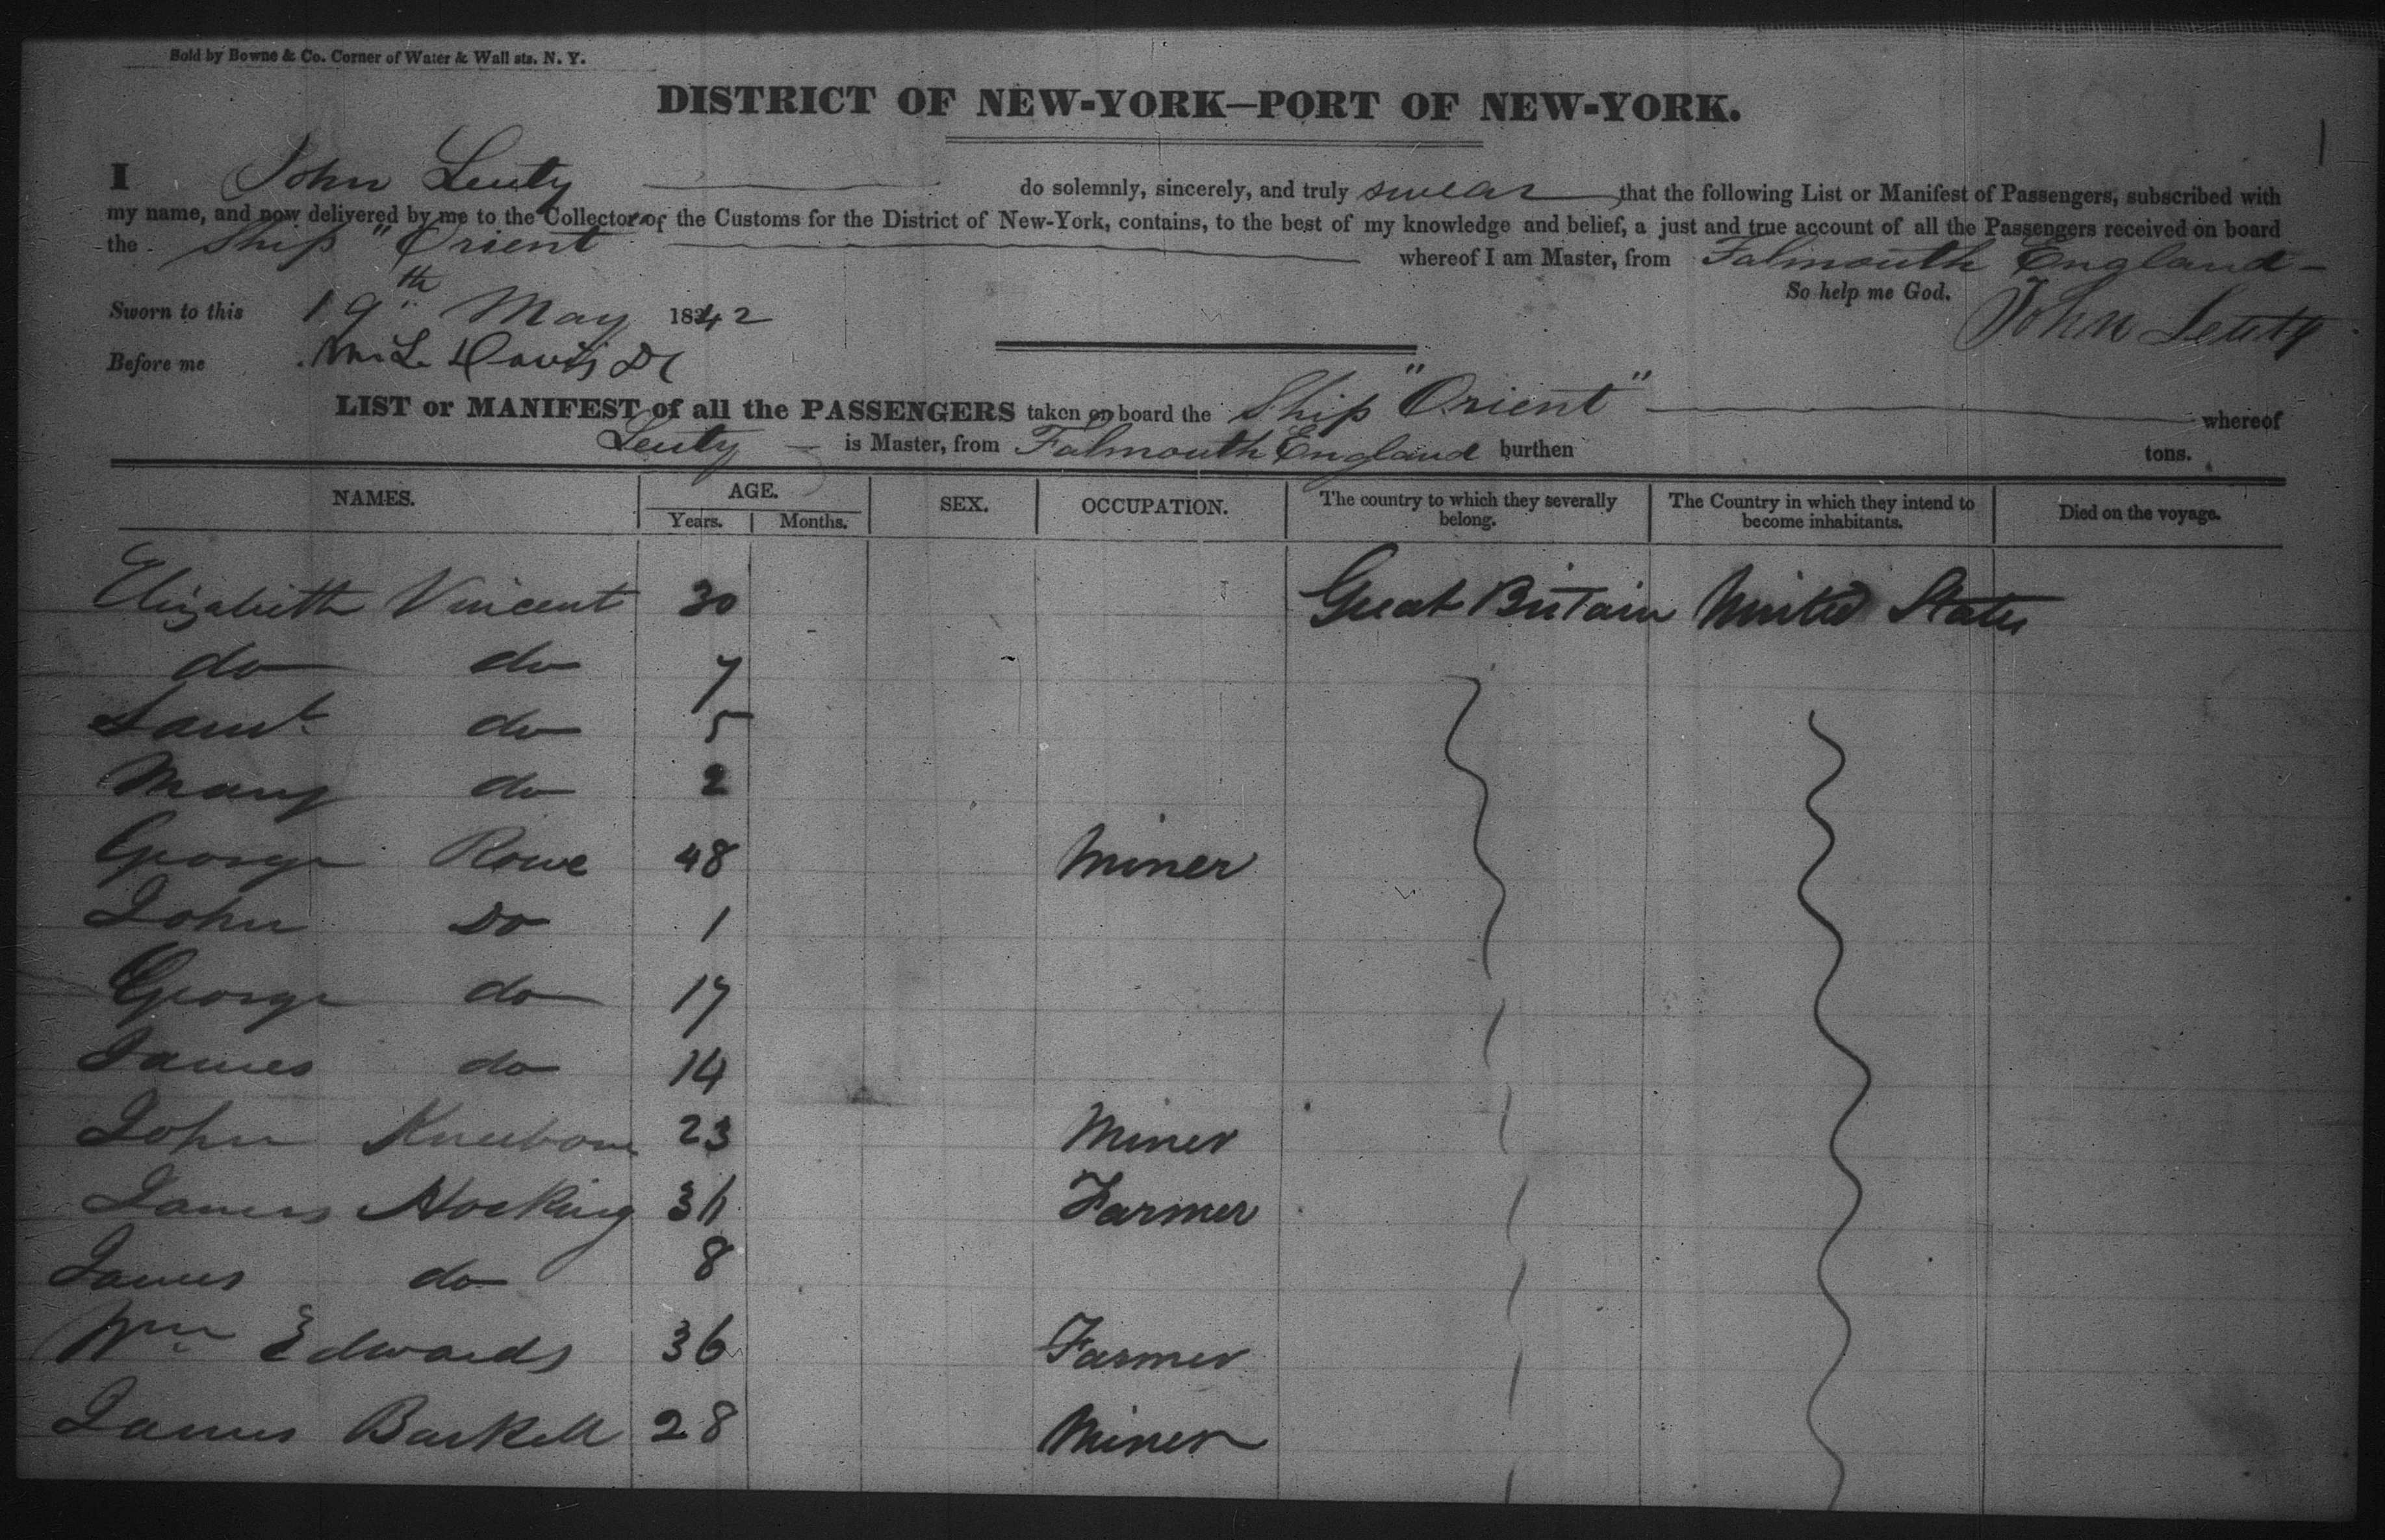 Sold by Bowne & Co. Corner of Water & Wall sts. N. Y.
DISTRICT OF NEW-YORK—PORT OF NEW-YORK.
I John Leuty do solemnly, sincerely, and truly swear that the following List or Manifest of Passengers, subscribed with
my name, and now delivered by me to the Collector of the Customs for the District of New-York, contains, to the best of my knowledge and belief, a just and true account of all the Passengers received on board
the Ship "Orient whereof I am Master, from Falmouth England
So help me God.
Sworn to this 19th May 1842 John Leuty
Before me Davis
LIST or MANIFEST of all the PASSENGERS taken on board the Ship "Orient" whereof
Leuty is Master, from Falmouth England burthen tons.
NAMES. AGE. SEX. OCCUPATION. The country to which they severally belong. The Country in which they intend to become inhabitants. Died on the voyage.
Years. Months.
Elizabeth Vincent 30 Great Britain United States
do do 7
Saml do 5
Mary do 2
George Rowe 48 Miner
John Do 1
George do 17
James do 14
John Kneebone 23 Miner
James Hocking Farmer
James do 8
Wm Edwards 36 Farmer
James Barkell 28 Miner